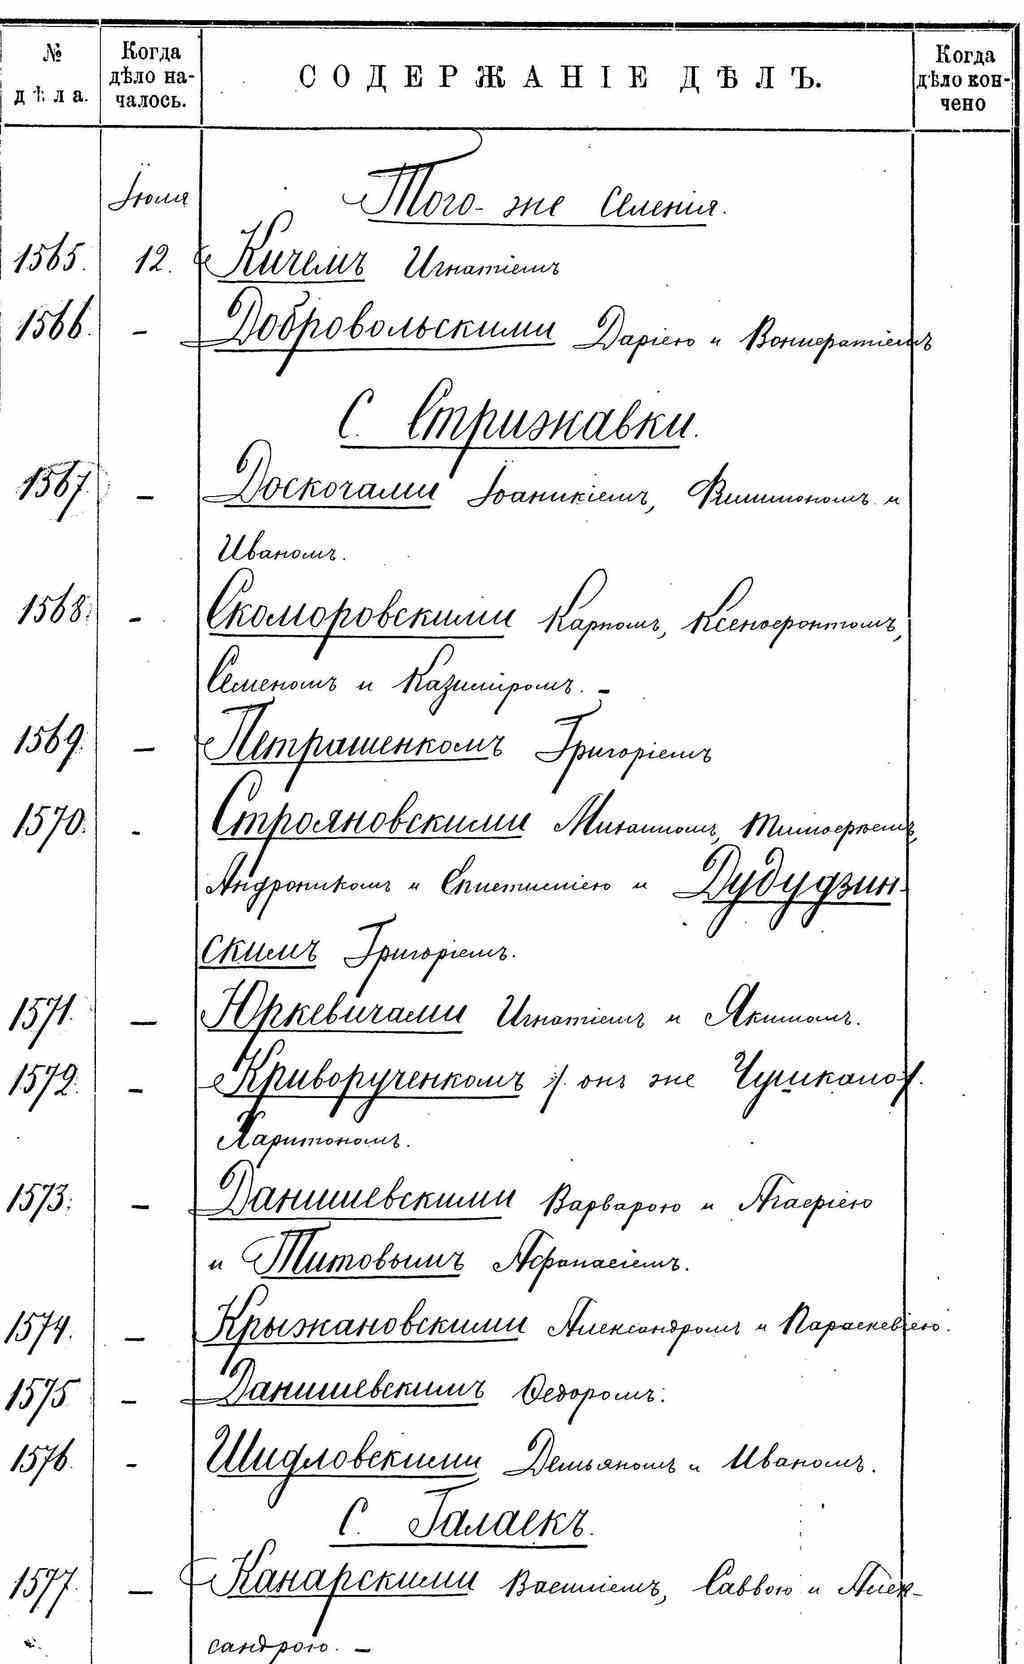 № дѣла.
Когда дѣло на-чалось.
СОДЕРЖАНІЕ ДѢЛЪ.
Когда дѣло кон-чено
Іюля
Того-же селенія.
1565. 12. Кичемъ Игнатіемъ
1566. - Добровольскими Даріею и Вонифатіемъ
С. Стрижавки.
1567. - Доскочами Іоаникіемъ, Филимономъ и
Иваномъ.
1568. - Скоморовскими Карпомъ, Ксенофонтомъ,
Семеномъ и Казиміромъ. -
1569. - Петрашенкомъ Григоріемъ
1570. - Строяновскими Михаиломъ, Тимофѣемъ,
Андроникомъ и Епистиміею и Дудудзин-
скимъ Григоріемъ.
1571. - Юркевичами Игнатіемъ и Якимомъ.
1572. - Криворученкомъ /. онъ же Чушкало /.
Харитономъ.
1573. - Данишевскими Варварою и Агафіею
и Титовымъ Афанасіемъ.
1574. - Крыжановскими Александромъ и Параскевіею.
1575 - Данишевскимъ Ѳедоромъ.
1576. - Шидловскими Демьяномъ и Иваномъ.
С. Галаекъ.
1577. - Канарскими Василіемъ, Саввою и Алек-
сандрою. -